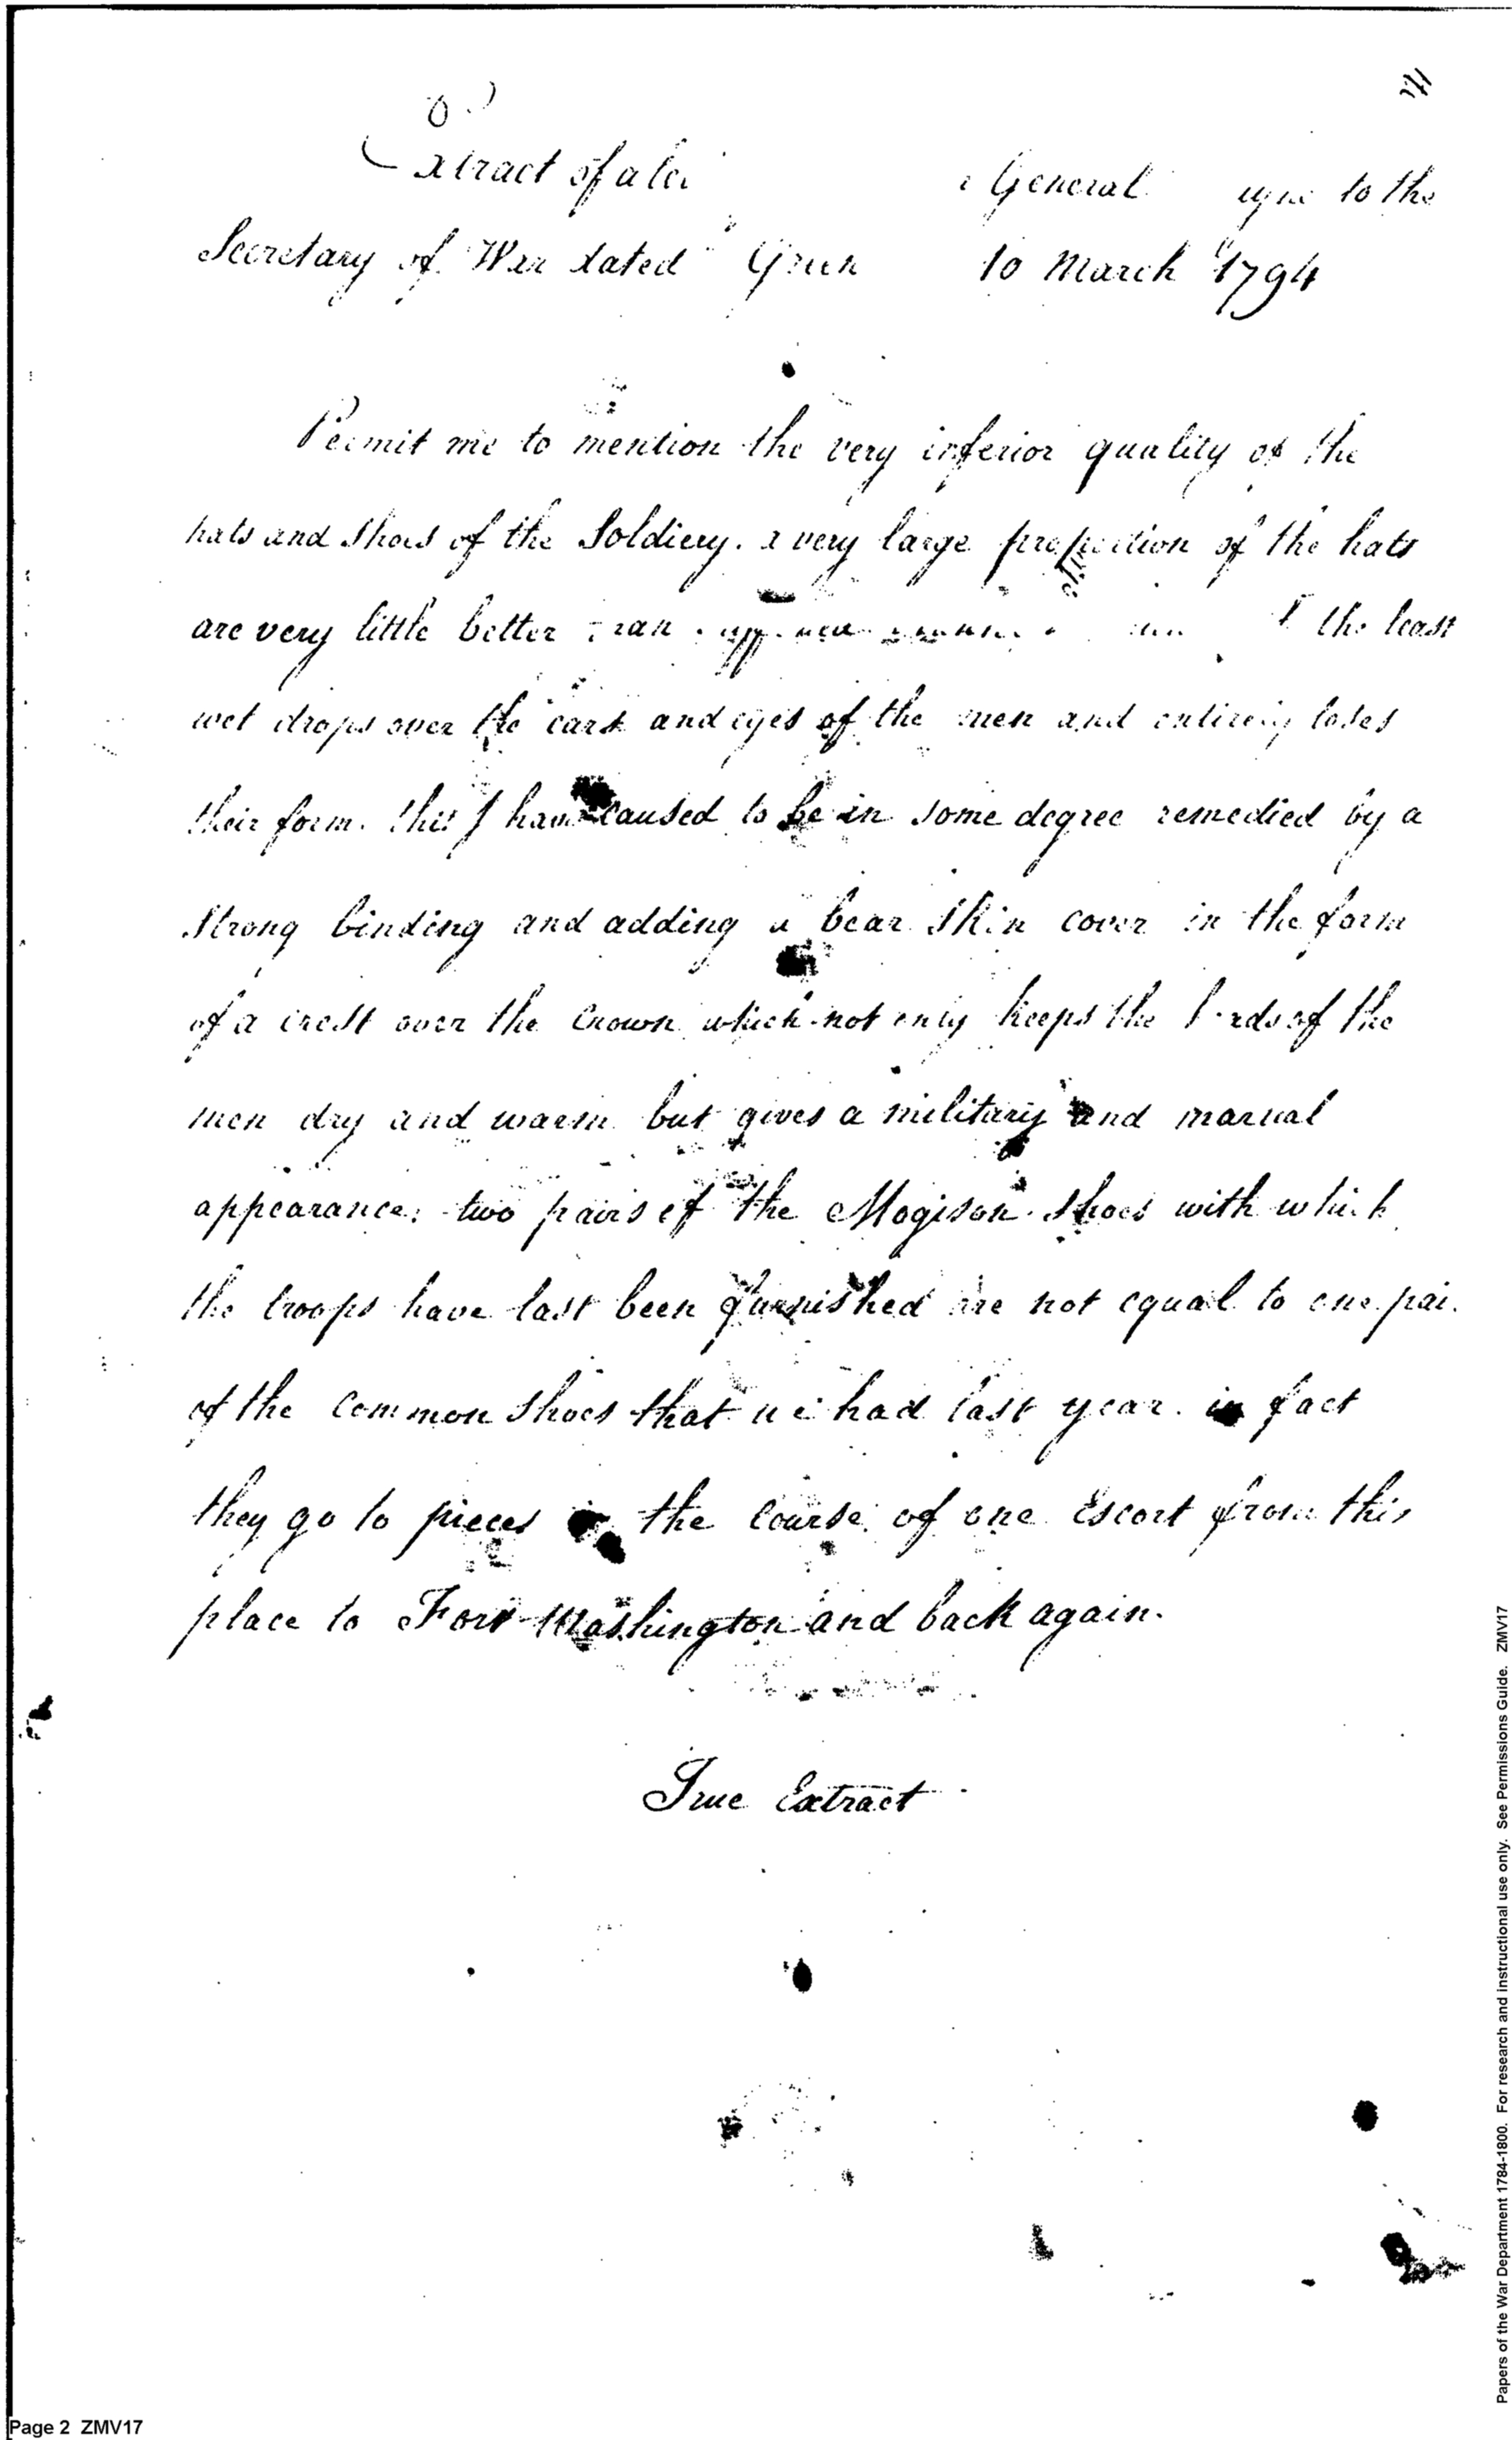 Extract of a General to the
Secretary of War dated Green 10 March 1794
Permit me to mention the very inferior quality of the
hats and Shoes of the Soldiery. a very large proportion of the hats
are very little better than the least
wet drops over the ears and eyes of the men and entirely loses
their form. this I have caused to be in some degree remedied by a
strong binding and adding a bear skin cover in the form
of a crest over the Crown which not only keeps the of the
men dry and warm but gives a military and martial
appearance: two pairs of the Mogison Shoes with which
the troops have last been furnished are not equal to one pair
of the Common Shoes that we had last year. in fact
they go to pieces in the Course of one Escort from this
place to Fort Washington and back again.
True Extract
Page 2 ZMV17
Papers of the War Department 1784-1800. For research and instructional use only. See Permissions Guide. ZMV17